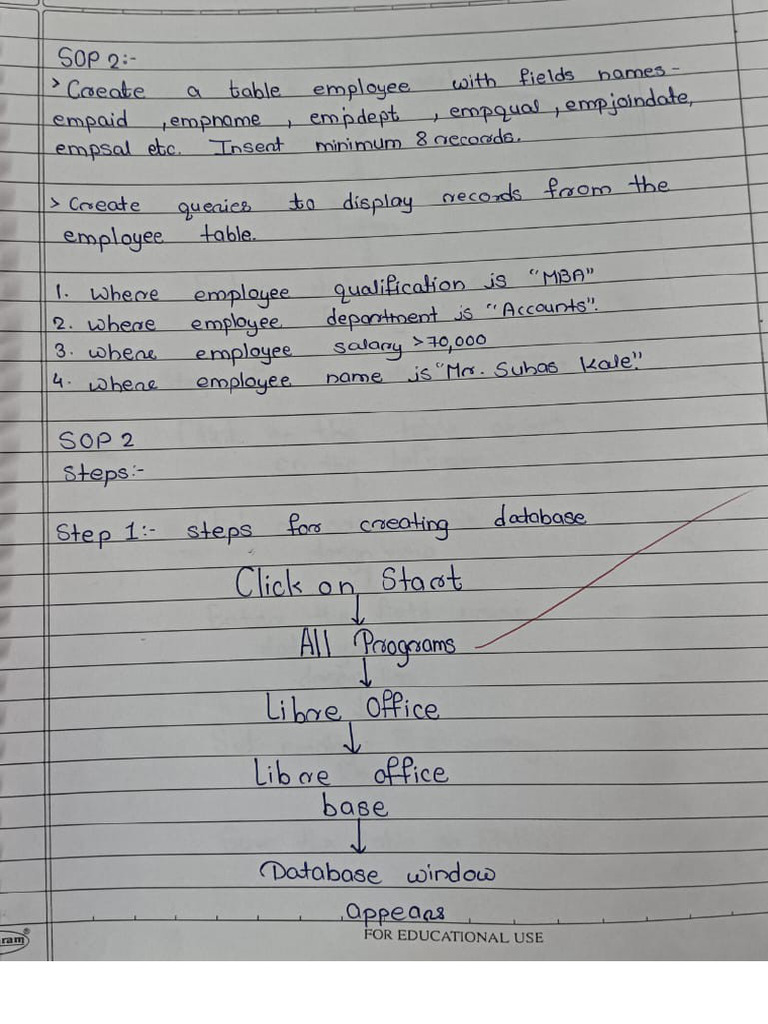 SOP 2:-
> Create a table employee with fields names-
empaid , empname , empdept , empqual , empjoindate,
empsal etc. Insert minimum 8 records.
> Create queries to display records from the
employee table.
1. Where employee qualification is "MBA"
2. where employee department is "Accounts".
3. where employee salary >70,000
4. where employee name is "Mr. Suhas Kale."
SOP 2
Steps:-
Step 1:- steps for creating database
Click on Start
↓
All Programs
↓
Libre Office
↓
Libre office
base
↓
Database window
appears
ram®
FOR EDUCATIONAL USE